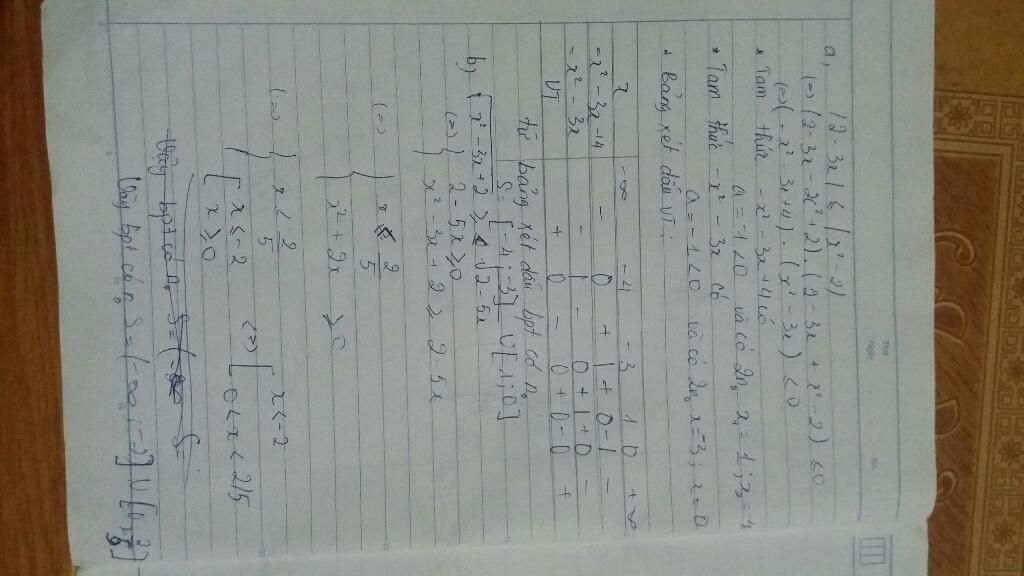 Thứ
Ngày
No.
a, |2 - 3x| ≤ |x² - 2|
(=) (2 - 3x - x² + 2).(2 - 3x + x² - 2) ≤ 0
(=) (-x² - 3x + 4).(x² - 3x) ≤ 0
* Tam thức -x² - 3x + 4 có
a = -1 < 0 và có 2n₀ x₁ = 1; x₂ = -4
* Tam thức -x² - 3x có
a = -1 < 0 và có 2n₀ x = -3; x = 0
* bảng xét dấu VT:
x | -∞ -4 -3 1 0 +∞
-x² - 3x + 4 | - 0 + | + 0 - | -
-x² - 3x | - | - 0 + | + 0 -
VT | + 0 - 0 + 0 - 0 +
từ bảng xét dấu bpt có n₀
S = [-4; -3] U [1; 0]
b, √x² - 3x + 2 ≥ √2 - 5x
(=) { 2 - 5x ≥ 0
x² - 3x + 2 ≥ 2 - 5x
(=) { x ≤ 2/5
x² + 2x ≥ 0
(=) { x < 2/5
[ x ≤ -2
x ≥ 0
(=) [ x < -2
0 < x < 2/5
Vậy bpt có n₀ S = (-∞; -2] U [0; 2/5]